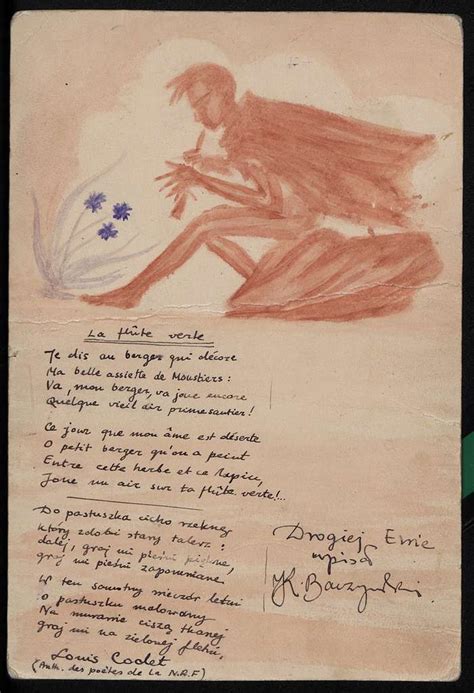 La flûte verte
Je dis au berger qui décore
Ma belle assiette de Moustiers :
Va, mon berger, va joue encore
Quelque vieil air primesautier!
Ce jour que mon âme est déserte
O petit berger qu'on a peint
Entre cette herbe et ce lapin,
Joue un air sur ta flûte verte!...
Do pastuszka cicho rzeknę
który zdobi stary talerz :
dalej, graj mi pieśni piękne,
graj mi pieśni zapomniane.
W ten smutny wieczór letni
O pastuszku malowany
Na murawie ciszą tkanej
graj mi na zielonej fletni.
Louis Codet
(Anth. des poètes de la N.R.F)
Drogiej Ewie
wpisał
K Baczyński